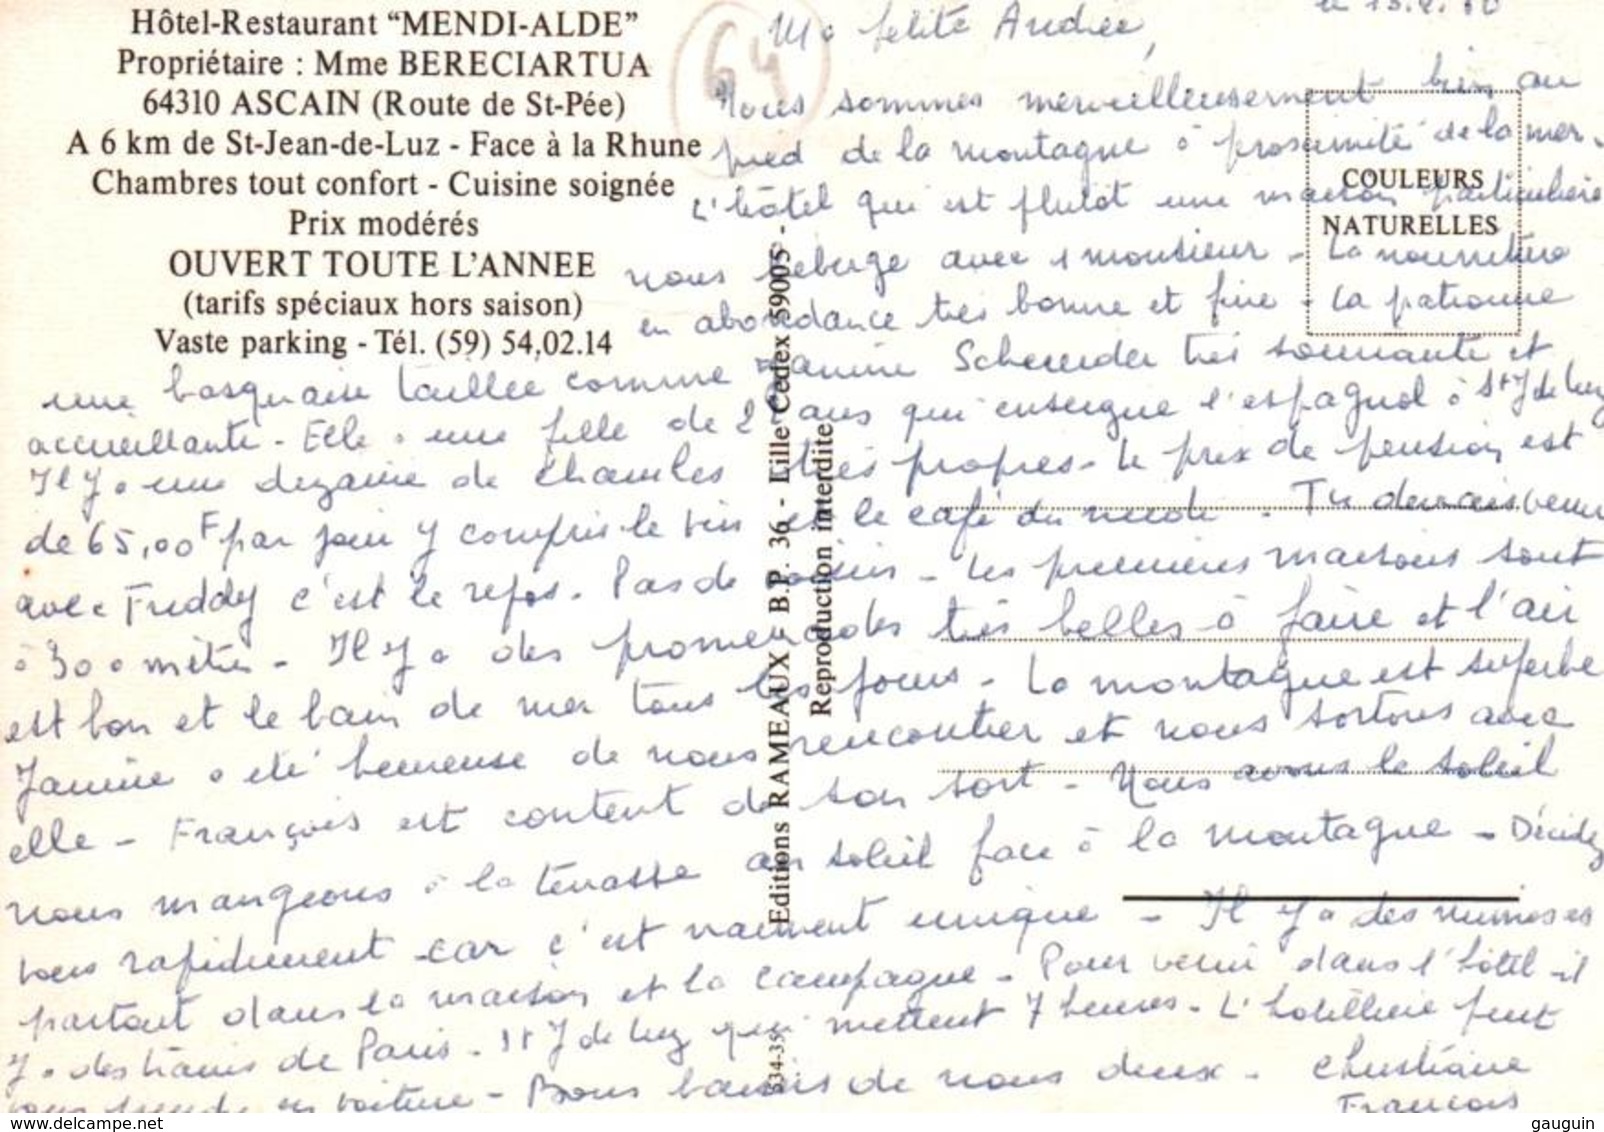 Hôtel-Restaurant “MENDI-ALDE”
Propriétaire : Mme BERECIARTUA
64310 ASCAIN (Route de St-Pée)
A 6 km de St-Jean-de-Luz - Face à la Rhune
Chambres tout confort - Cuisine soignée
Prix modérés
OUVERT TOUTE L'ANNEE
(tarifs spéciaux hors saison)
Vaste parking - Tél. (59) 54.02.14
64
COULEURS
NATURELLES
Editions RAMEAUX B.P. 36 - Lille Cedex 59005 -
Reproduction interdite
334-35
Ma petite Andrée,
Nous sommes merveilleusement bien au
pied de la montagne à proximité de la mer.
L'hôtel qui est plutôt une maison particulière
nous heberge avec 1 monsieur - La nourriture
en abondance très bonne et fine - La patronne
une basquaise taillée comme Janine très souriante et
accueillante - Elle a une fille de ans qui enseigne l'espagnol à St J de Luz
Il y a une dizaine de chambres très propres - le prix de pension est
de 65,00F par jour y compris le vin et le café du midi - Tu devrais venir
avec Freddy c'est le repos - Pas de voisins - les premières maisons sont
à 300 mètres - Il y a des promenades très belles à faire et l'air
est bon et le bain de mer tous les jours - La montagne est superbe
Janine a été heureuse de nous rencontrer et nous sortons avec
elle - François est content de son sort - Nous avons le soleil
nous mangeons à la terrasse au soleil face à la montagne - Décidez
vous rapidement car c'est vraiment unique - Il y a des mimosas
partout dans la maison et la campagne - Pour venir dans l'hôtel il
y a des trains de Paris - St J de Luz qui mettent 7 heures - L'hôtellière peut
vous prendre en voiture - Bons baisers de nous deux - Christiane
François
gauguin